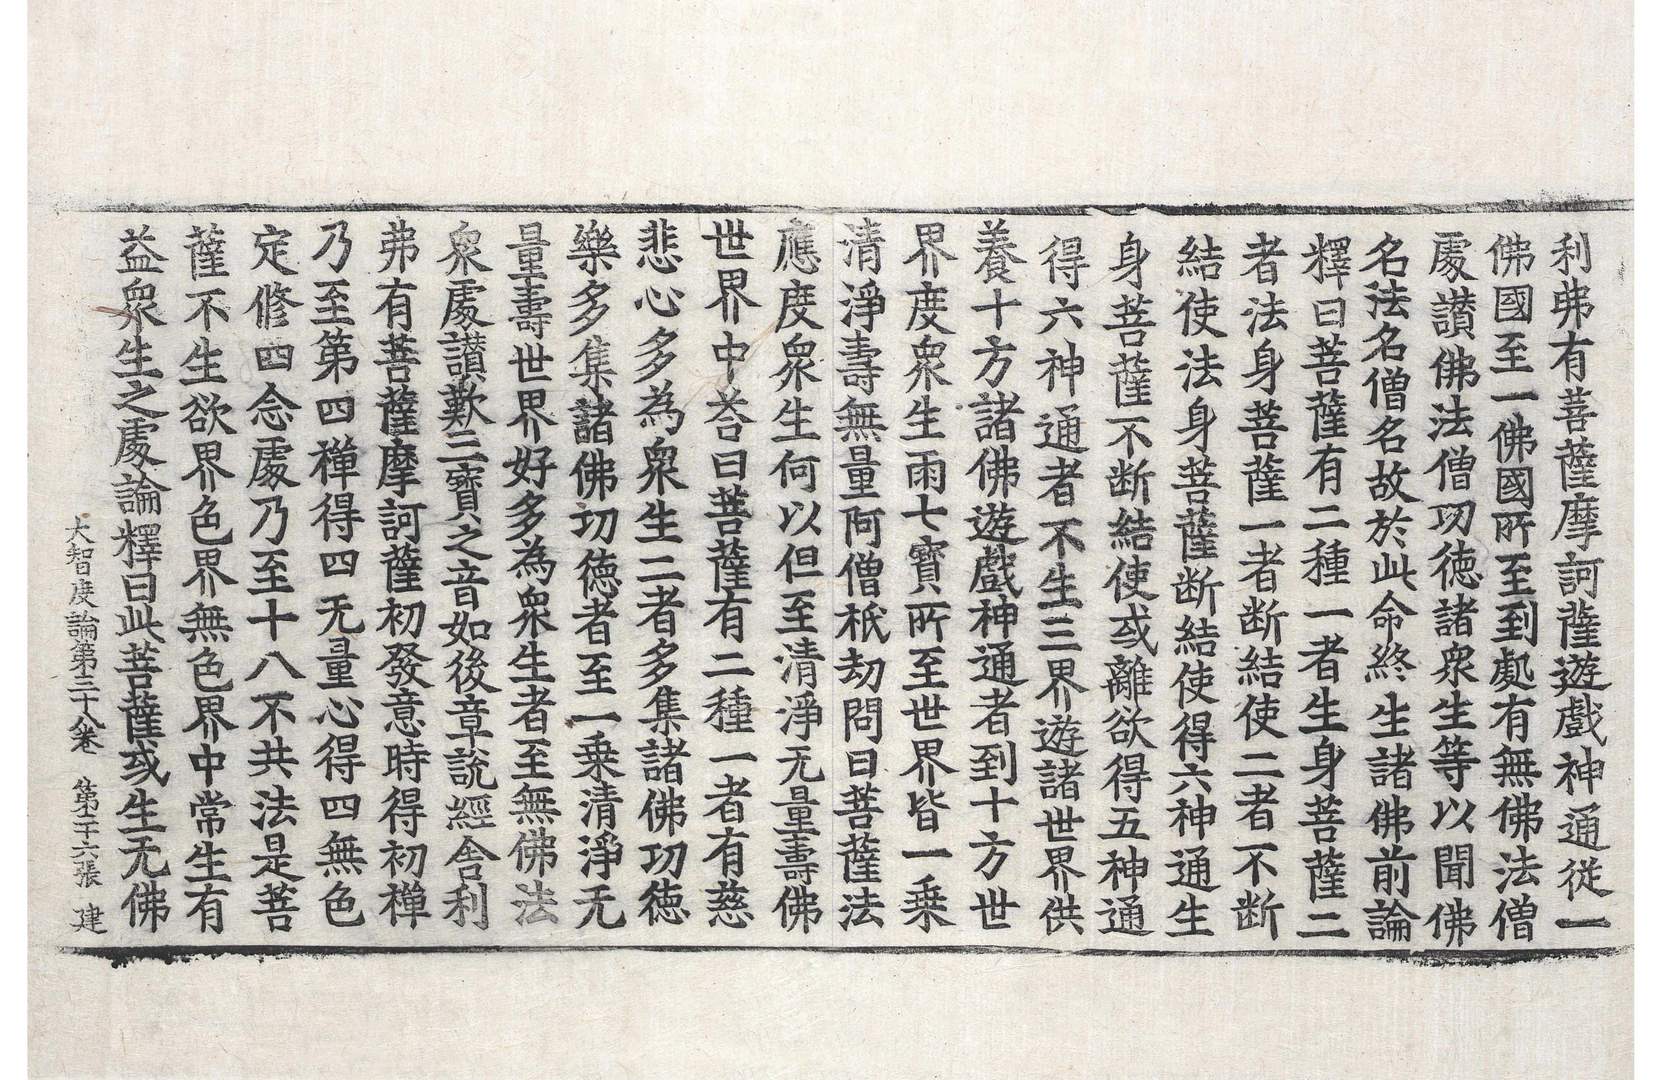 利弗有菩薩摩訶薩遊戲神通從一
佛國至一佛國所至到處有無佛法僧
處讃佛法僧功德諸衆生等以聞佛
名法名僧名故於此命終生諸佛前論
釋曰菩薩有二種一者生身菩薩二
者法身菩薩一者断結使二者不断
結使法身菩薩断結使得六神通生
身菩薩不断結使或離欲得五神通
得六神通者不生三界遊諸世界供
養十方諸佛遊戲神通者到十方世
界度衆生雨七寶所至世界皆一乗
清淨壽無量阿僧秖劫問曰菩薩法
應度衆生何以但至清淨无量壽佛
世界中荅曰菩薩有二種一者有慈
悲心多為衆生二者多集諸佛功德
樂多集諸佛功德者至一乗清淨无
量壽世界好多為衆生者至無佛法
衆處讃歎三寶之音如後章説經舍利
弗有菩薩摩訶薩初發意時得初禪
乃至第四禪得四无量心得四無色
定修四念處乃至十八不共法是菩
薩不生欲界色界無色界中常生有
益衆生之處論釋曰此菩薩或生无佛
大智度論第三十八卷 第二十六張 建